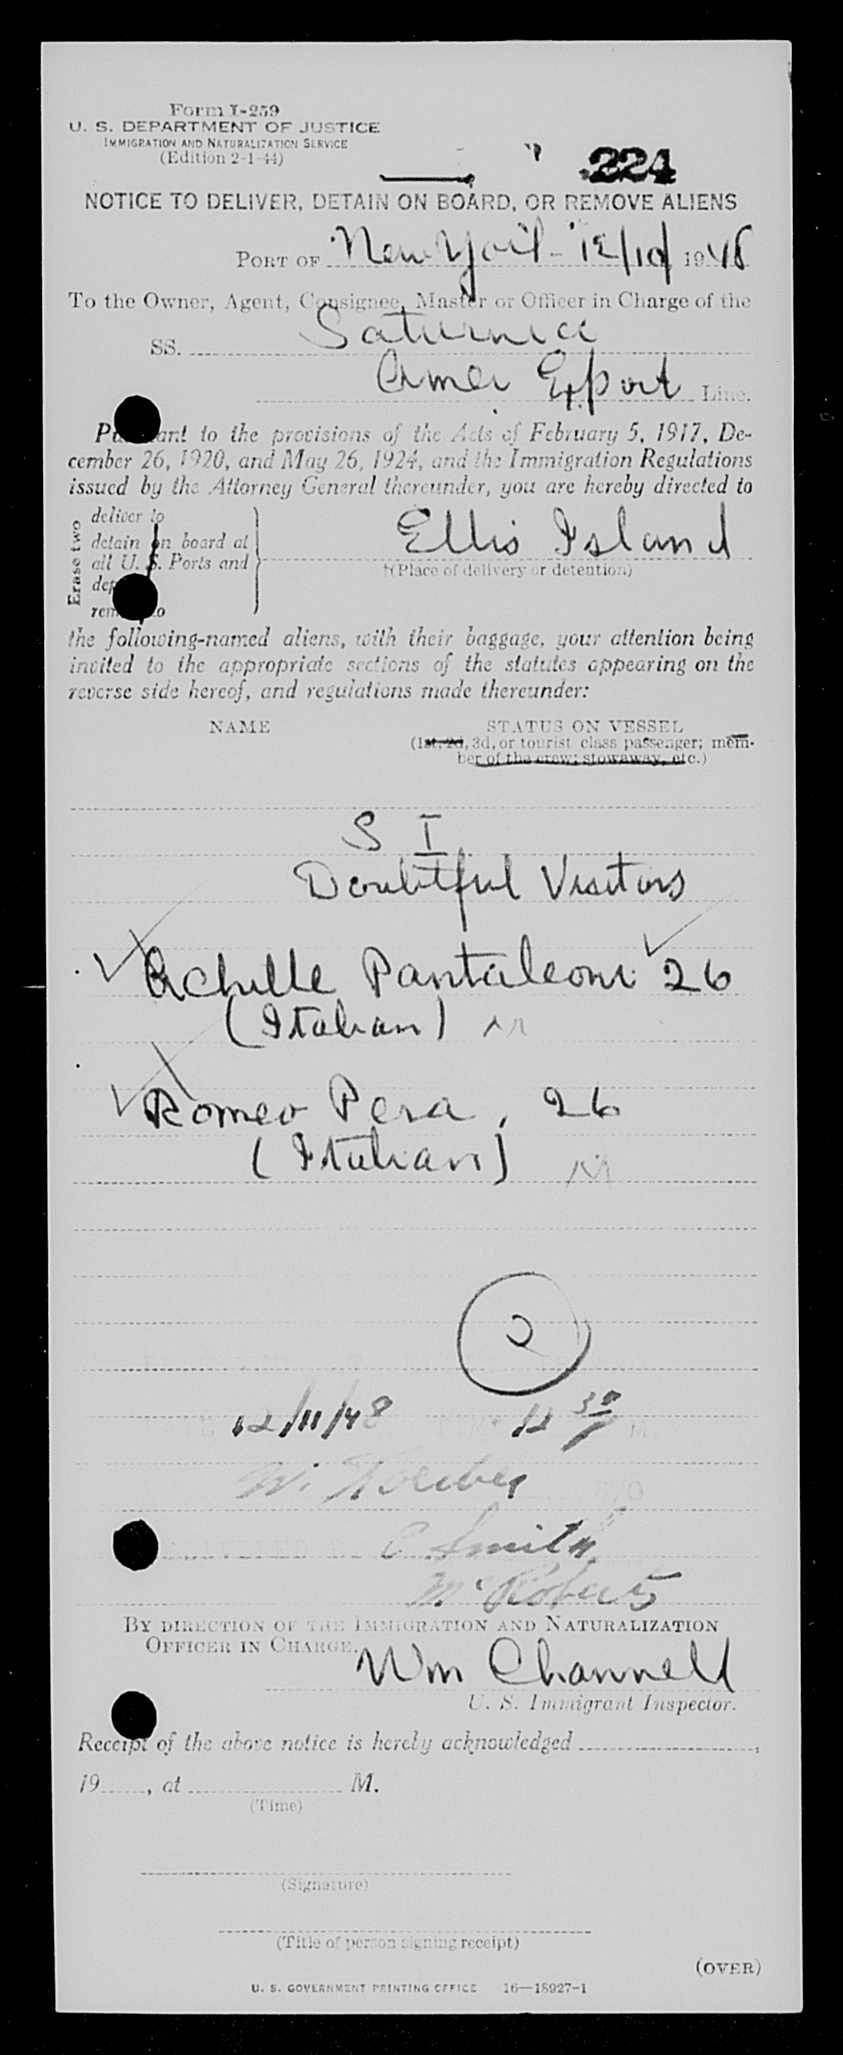 Form I-259
U. S. DEPARTMENT OF JUSTICE
IMMIGRATION AND NATURALIZATION SERVICE
(Edition 2-1-44)
224
NOTICE TO DELIVER, DETAIN ON BOARD, OR REMOVE ALIENS
PORT OF New York - 12/10/ 1948
To the Owner, Agent, Consignee, Master or Officer in Charge of the
SS. Saturnia
Amer Export Line.
Pursuant to the provisions of the Acts of February 5, 1917, De-
cember 26, 1920, and May 26, 1924, and the Immigration Regulations
issued by the Attorney General thereunder, you are hereby directed to
Erase two
deliver to
detain on board at
all U. S. Ports and
Ellis Island
(Place of delivery or detention)
the following-named aliens, with their baggage, your attention being
invited to the appropriate sections of the statutes appearing on the
reverse side hereof, and regulations made thereunder:
NAME STATUS ON VESSEL
(1st, 2d, 3d, or tourist class passenger; mem-
ber of the crew; stowaway, etc.)
S I
Doubtful Visitors
Achille Pantaleoni 26
(Italian)
Romeo Pera, 26
(Italian)
2
12/11/48 12 30 P M
C Smith
McRoberts
BY DIRECTION OF THE IMMIGRATION AND NATURALIZATION
OFFICER IN CHARGE.
Wm Channell
U. S. Immigrant Inspector.
Receipt of the above notice is hereby acknowledged
19 , at M.
(Time)
(Signature)
(Title of person signing receipt)
(OVER)
U. S. GOVERNMENT PRINTING OFFICE 16—18927-1